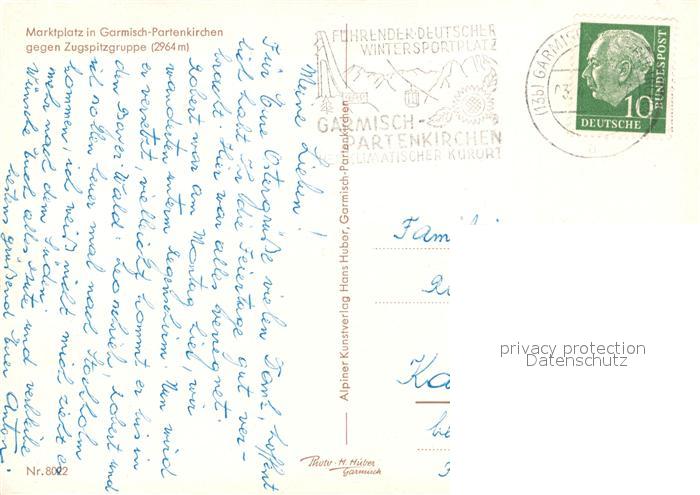 Marktplatz in Garmisch-Partenkirchen
gegen Zugspitzgruppe (2964 m)
Meine Lieben!
Für Eure Ostergrüße vielen Dank, hoffent
lich habt Ihr die Feiertage gut ver-
bracht. Hier war alles verregnet.
Robert war am Montag hier, wir
wanderten unterm Regenschirm. Nun wird
er versetzt, vielleicht kommt er bis in
den Bayer. Wald. Robert und
ich sollen heuer mal nach Stockholm
kommen, ich weiß nicht mich zieht es
mehr nach dem Süden.
Wünsche Euch alles Gute und verbleibe
bestens grüßend Euer Anton.
Nr. 8022
Alpiner Kunstverlag Hans Huber, Garmisch-Partenkirchen
Photo-H. Huber
Garmisch
FÜHRENDER DEUTSCHER
WINTERSPORTPLATZ
GARMISCH-
PARTENKIRCHEN
KLIMATISCHER KURORT
(13b) GARMISC
10
BUNDESPOST
DEUTSCHE
a
Fami
Ka
privacy protection
Datenschutz